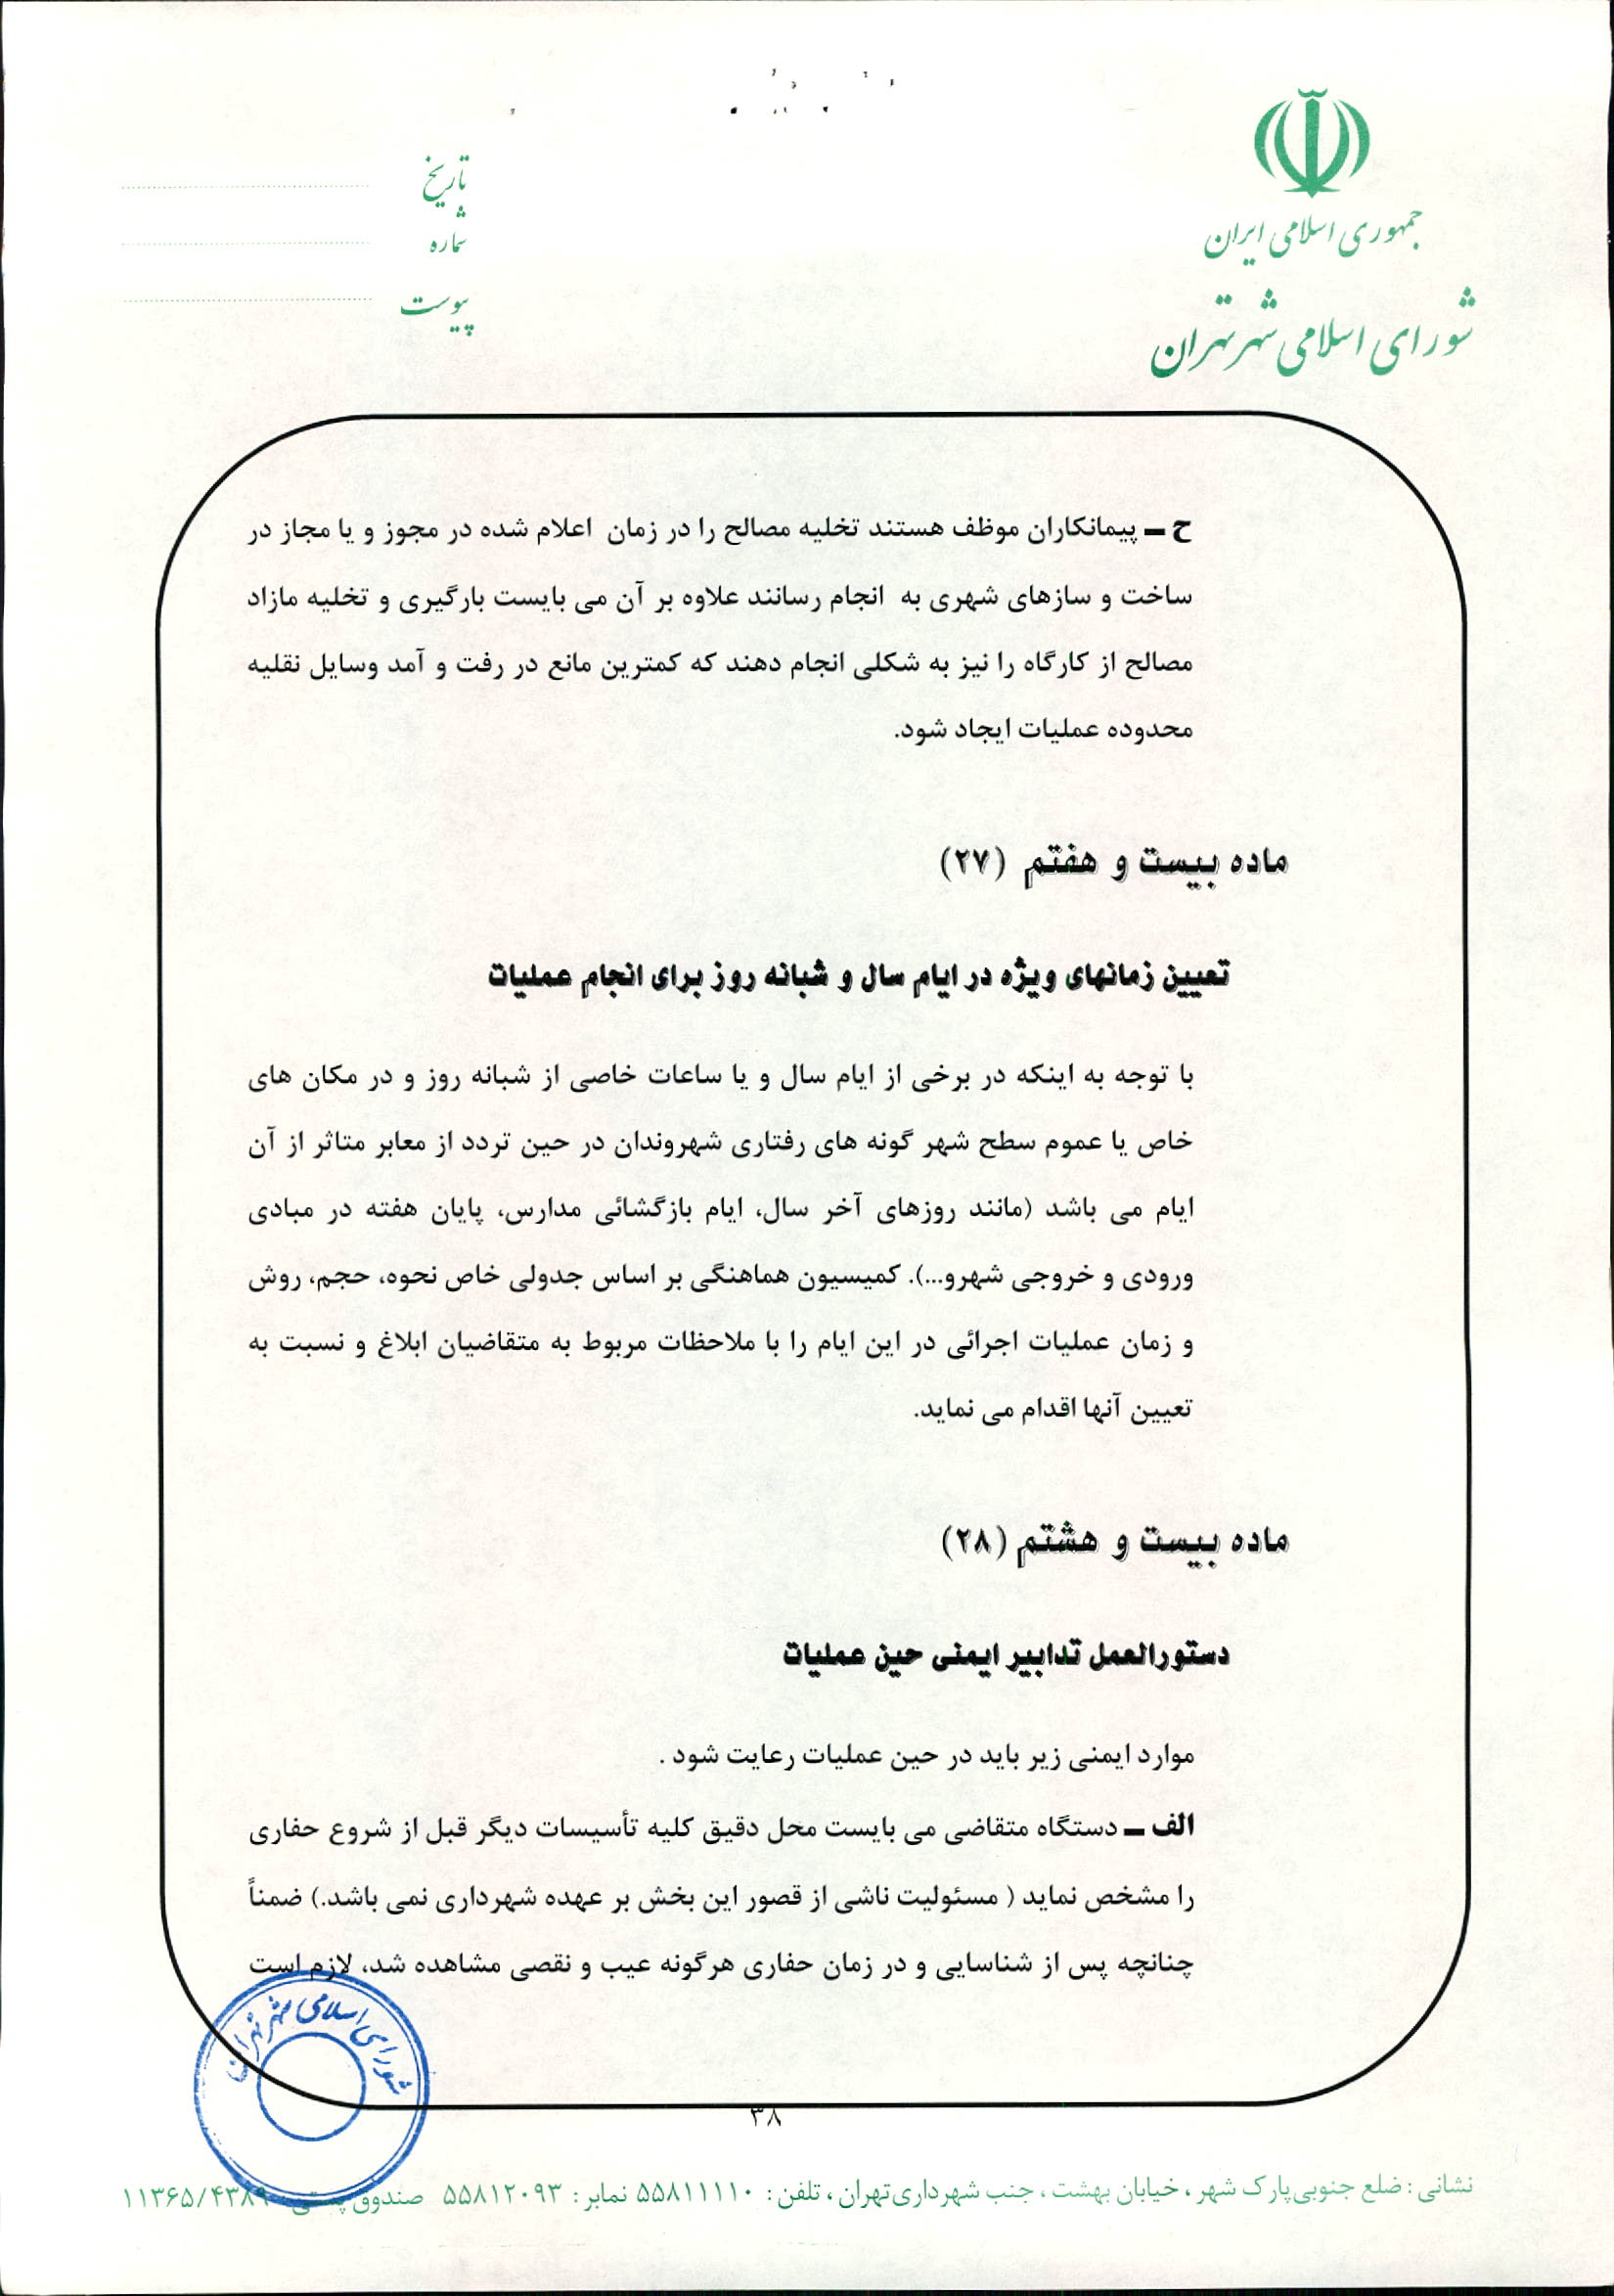 جمهوری اسلامی ایران
شورای اسلامی شهر تهران
تاریخ
شماره
پیوست
ح ـ پیمانکاران موظف هستند تخلیه مصالح را در زمان اعلام شده در مجوز و یا مجاز در
ساخت و سازهای شهری به انجام رسانند علاوه بر آن می بایست بارگیری و تخلیه مازاد
مصالح از کارگاه را نیز به شکلی انجام دهند که کمترین مانع در رفت و آمد وسایل نقلیه
محدوده عملیات ایجاد شود.
ماده بیست و هفتم (۲۷)
تعیین زمانهای ویژه در ایام سال و شبانه روز برای انجام عملیات
با توجه به اینکه در برخی از ایام سال و یا ساعات خاصی از شبانه روز و در مکان های
خاص یا عموم سطح شهر گونه های رفتاری شهروندان در حین تردد از معابر متاثر از آن
ایام می باشد (مانند روزهای آخر سال، ایام بازگشائی مدارس، پایان هفته در مبادی
ورودی و خروجی شهرو...). کمیسیون هماهنگی بر اساس جدولی خاص نحوه، حجم، روش
و زمان عملیات اجرائی در این ایام را با ملاحظات مربوط به متقاضیان ابلاغ و نسبت به
تعیین آنها اقدام می نماید.
ماده بیست و هشتم (۲۸)
دستورالعمل تدابیر ایمنی حین عملیات
موارد ایمنی زیر باید در حین عملیات رعایت شود .
الف ـ دستگاه متقاضی می بایست محل دقیق کلیه تأسیسات دیگر قبل از شروع حفاری
را مشخص نماید ( مسئولیت ناشی از قصور این بخش بر عهده شهرداری نمی باشد.) ضمناً
چنانچه پس از شناسایی و در زمان حفاری هرگونه عیب و نقصی مشاهده شد، لازم است
شورای اسلامی شهر تهران
۳۸
نشانی : ضلع جنوبی پارک شهر ، خیابان بهشت ، جنب شهرداری تهران ، تلفن : ۵۵۸۱۱۱۱۰ نمابر : ۵۵۸۱۲۰۹۳ صندوق پستی : ۱۱۳۶۵/۴۳۸۹